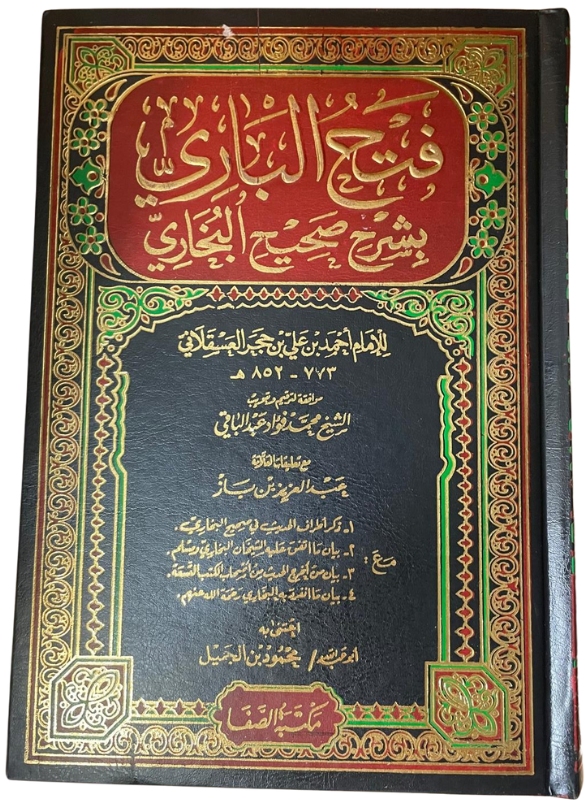 فَتْحُ البَارِي
بِشَرْحِ صَحِيْحِ البُخَارِيّ
لِلإمَامِ أحْمَد بن عَلِيّ بن حَجَر العَسْقَلَانِيّ
٧٧٣ - ٨٥٢ هـ
موافقة لترقيم وتبويب
الشيخ محمد فؤاد عبد الباقي
مع تعليقات العلامة
عبد العزيز بن باز
مَعَ:
١- ذكر أطراف الحديث في صحيح البخاري.
٢- بيان ما اتفق عليه الشيخان البخاري ومسلم.
٣- بيان من أخرج الحديث من أصحاب الكتب التسعة.
٤- بيان ما انفرد به البخاري رحمة الله عليهم.
اعتنى به
أبو عبد الله / محمود بن الجميل
مكتبة الصفا